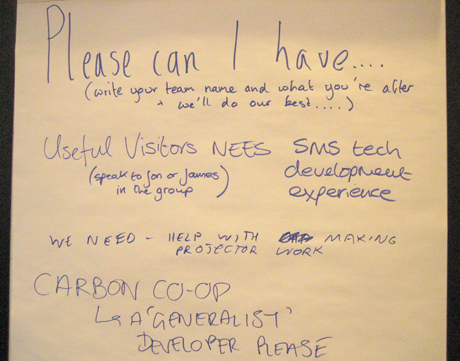 Please can I have....
(write your team name and what you're after
+ we'll do our best....)
Useful Visitors NEES SMS tech
(speak to Jon or James development
in the group) experience
WE NEED - HELP WITH MAKING
PROJECTOR WORK
CARBON CO-OP
↳ A 'GENERALIST'
DEVELOPER PLEASE